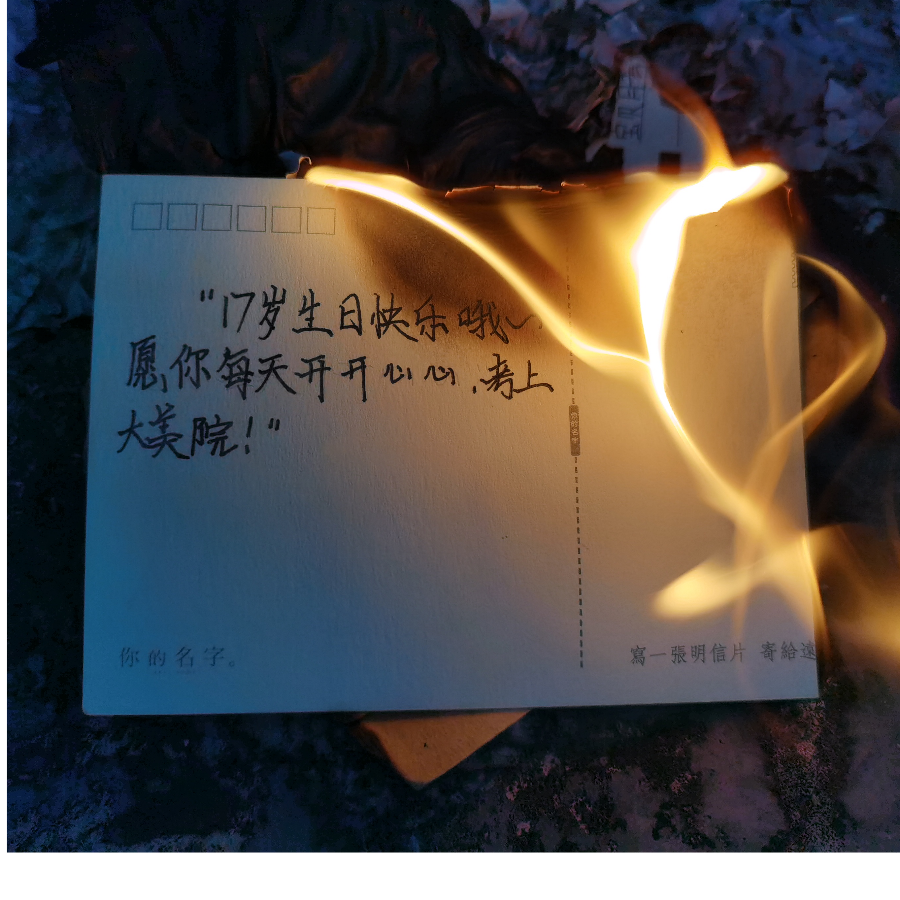 "17岁生日快乐哦~
愿你每天开开心心,考上
大美院!"
你的名字
你的名字。
寫一張明信片 寄給遠